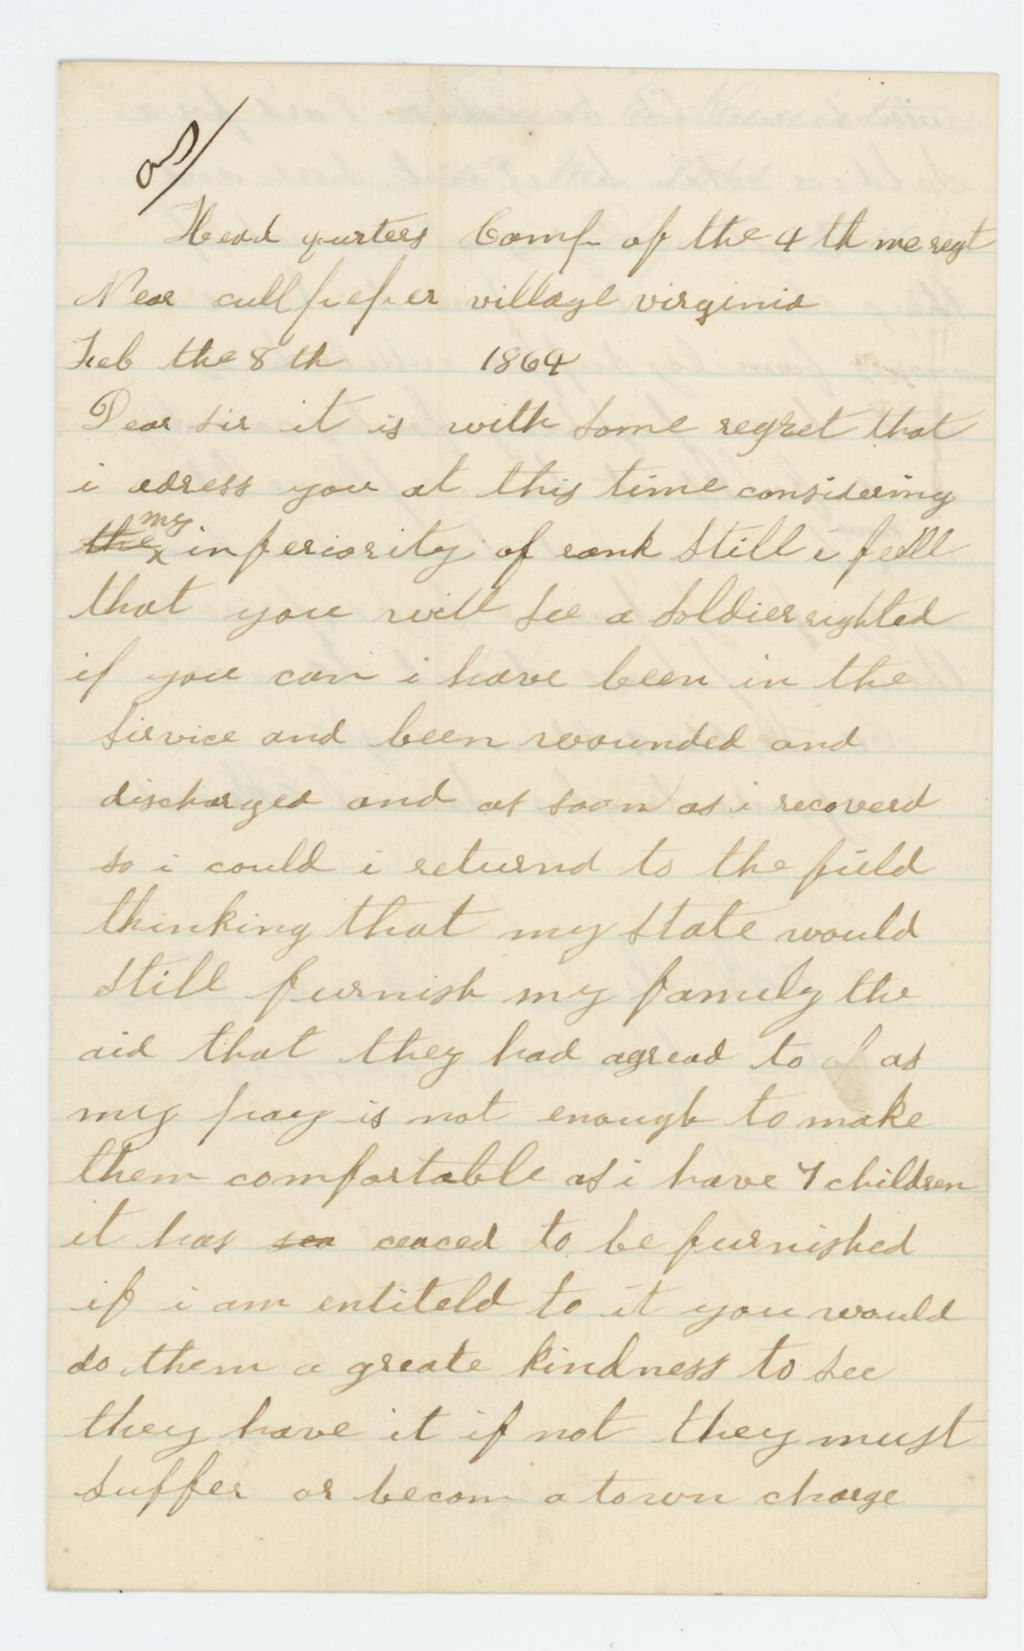 Head qurters Camp of the 4 th me regt
Near cullpeper village virginia
Feb the 8 th 1864
Dear sir it is with some regret that
i adress you at this time considering
the my inferiority of rank still i feell
that you will see a soldier righted
if you can i have been in the
sirvice and been wounded and
discharged and as soon as i recoverd
so i could i returnd to the field
thinking that my state would
still furnish my family the
aid that they had agread to as
my pay is not enough to make
them comfortable as i have 7 children
it has ceaced to be furnished
if i am entiteld to it you would
do them a greate kindness to see
they have it if not they must
suffer or becom a town charge